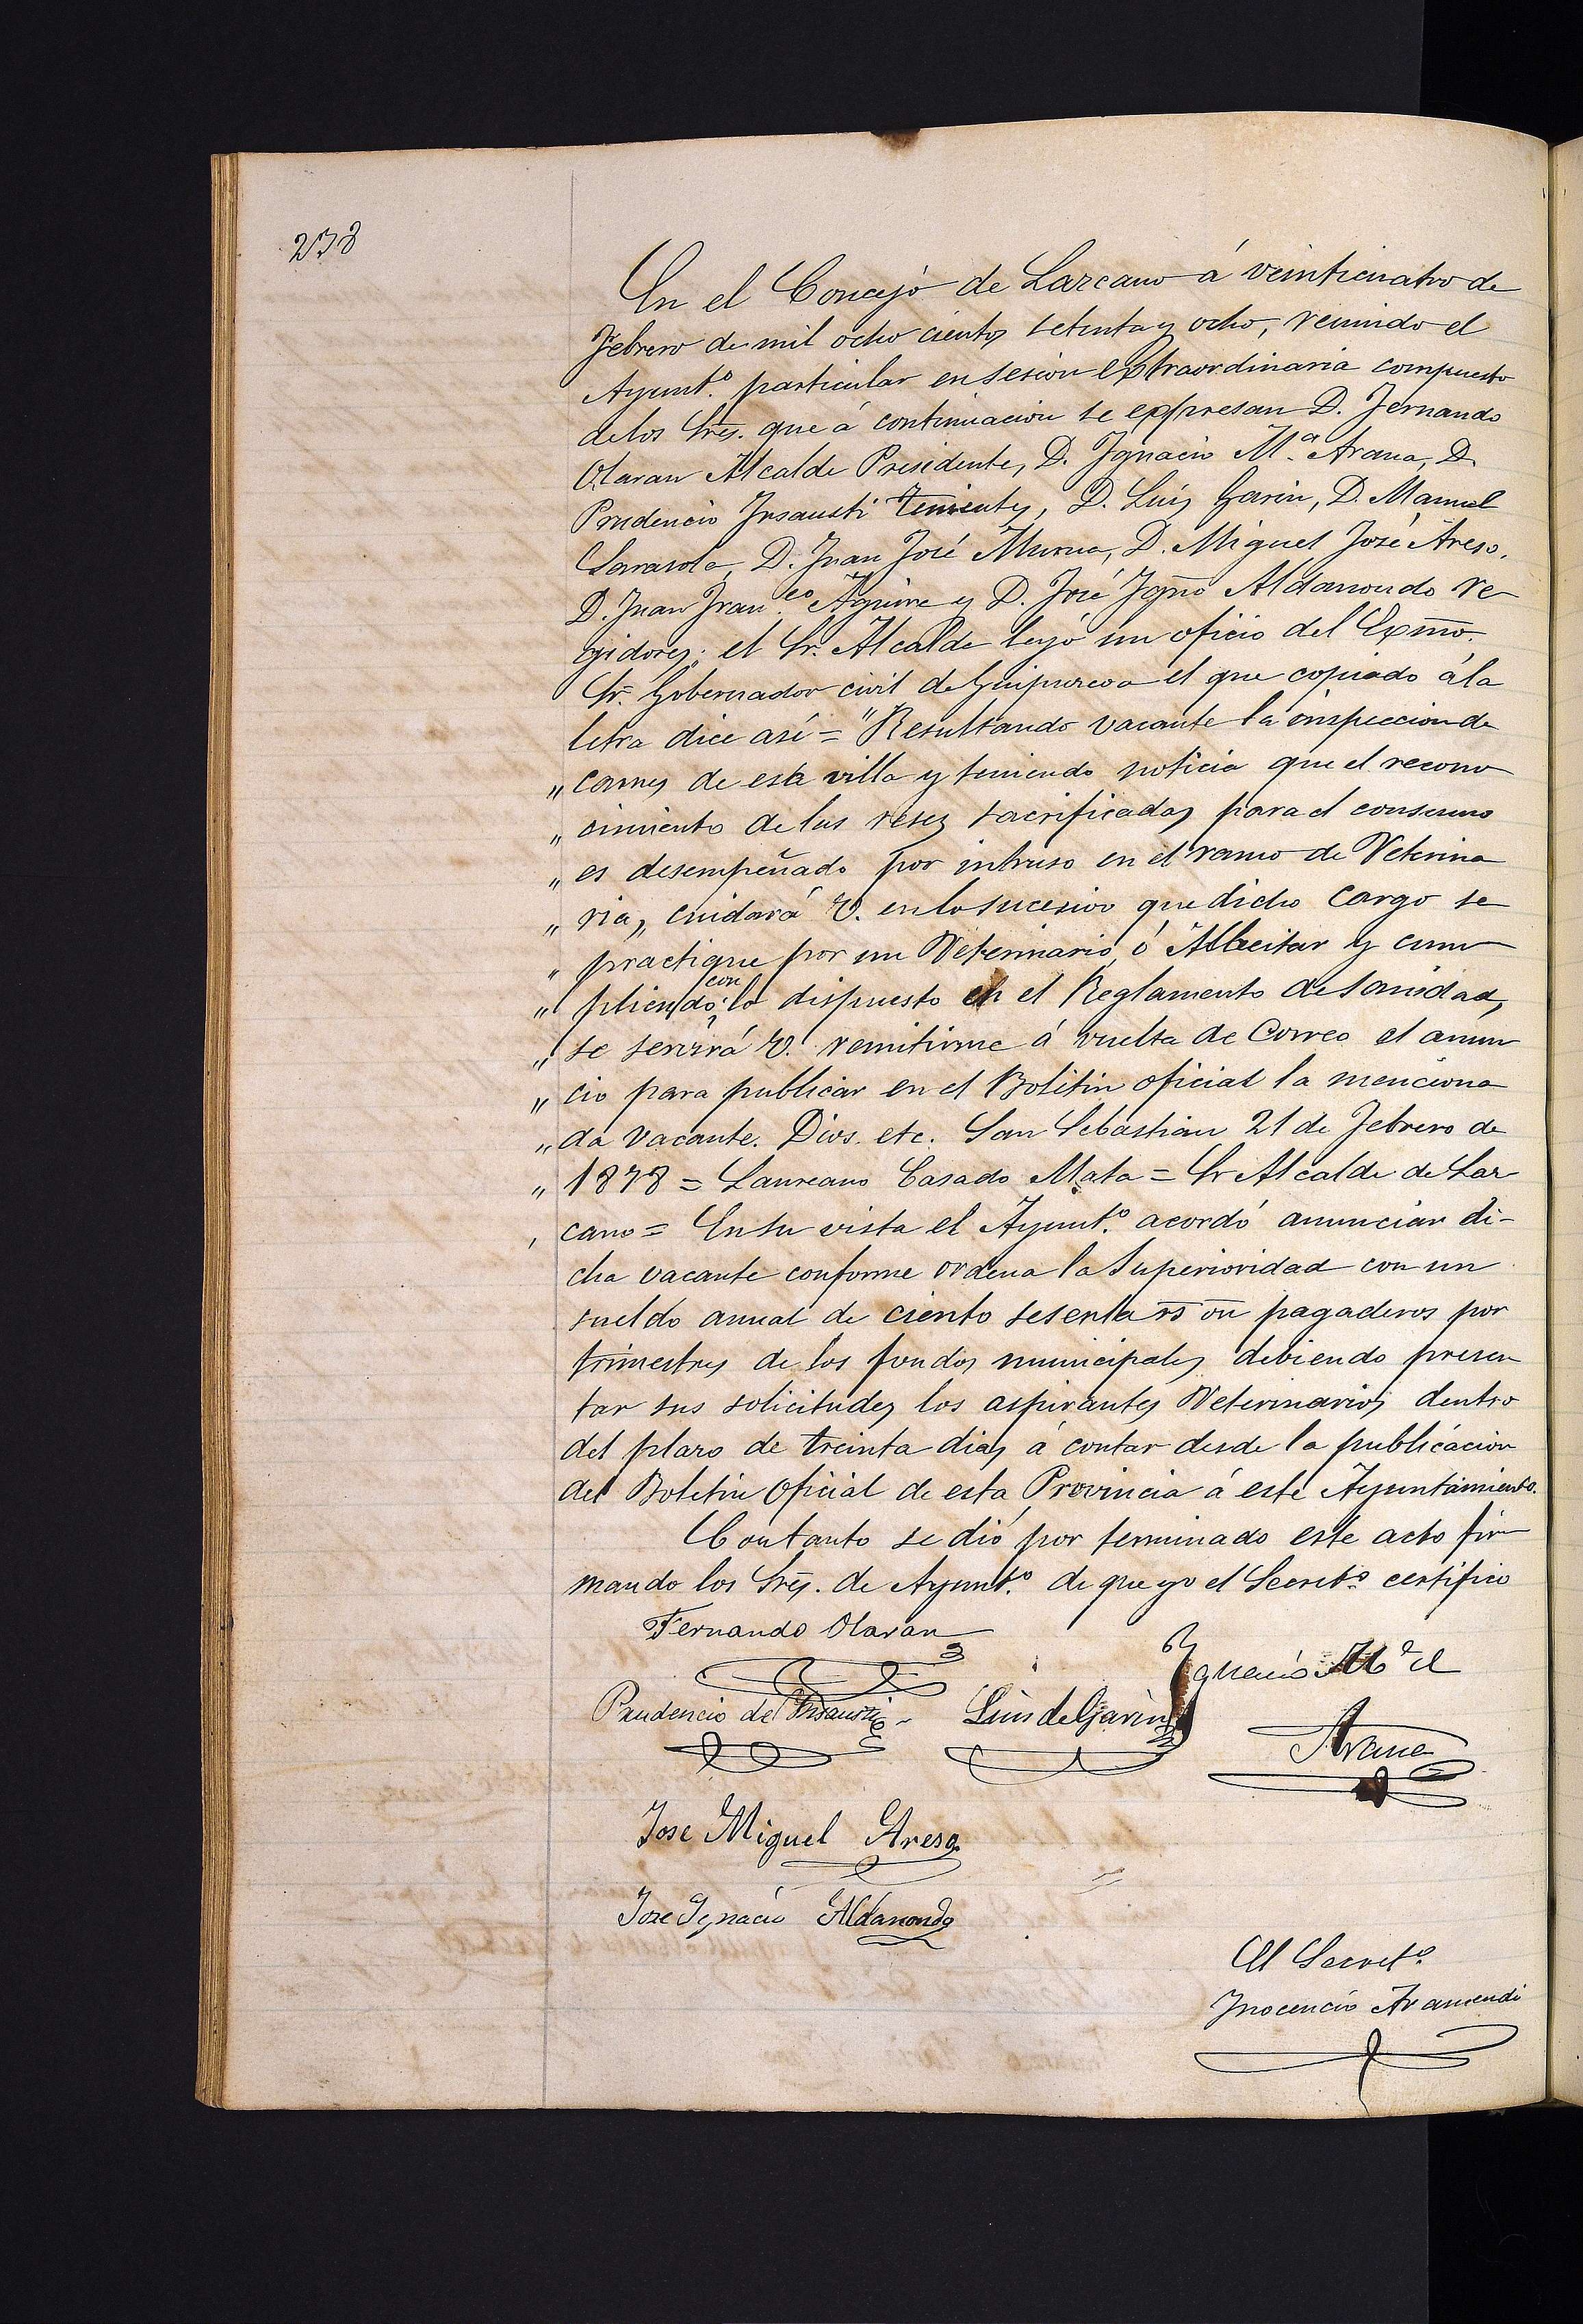 238
En el Concejo de Lazcano á veinticuatro de
Febrero de mil ocho cientos setenta y ocho, reunido el
Ayunt.º particular en sesion extraordinaria compuesto
de los Sres. que á continuacion se expresan D. Fernando
Olaran Alcalde Presidente, D. Ignacio M.ª Arana, D.
Prudencio Insausti tenientes, D. Luis Garin, D. Manuel
Sarasola, D. Juan José Murua, D. Miguel José Areso,
D. Juan Fran.co Aguirre y D. José Igno Aldanondo re-
gidores; el Sr. Alcalde leyó un oficio del Exmo.
Sr. Gobernador civil de Guipuzcoa el que copiado á la
letra dice asi = "Resultando vacante la inspeccion de
" carnes de esta villa y teniendo noticia que el recono
" cimiento de las reses sacrificadas para el consumo
" es desempeñado por intruso en el ramo de Veterina
" ria, cuidará V. en lo sucesivo que dicho cargo se
" practique por un Veterinario, ó Albeitar y cum
" pliendo con lo dispuesto en el Reglamento de Sanidad,
" se servirá V. remitirme á vuelta de Correo el anun
" cio para publicar en el Boletin oficial la menciona
" da vacante. Dios. etc. San Sebastian 21 de Febrero de
" 1878 = Laureano Casado Mata = Sr Alcalde de Laz
, cano = En su vista el Ayunt.º acordó anunciar di-
cha vacante conforme ordena la Superioridad con un
sueldo anual de ciento sesenta rs vn pagaderos por
trimestres de los fondos municipales debiendo presen
tar sus solicitudes los aspirantes Veterinarios dentro
del plazo de treinta dias á contar desde la publicacion
del Boletin Oficial de esta Provincia á este Ayuntamiento.
Con tanto se dió por terminado este acto fir
mando los Sres. de Ayunt.º de que yo el Secret.º certifico
Fernando Olaran
Ygnacio M.ª de
Prudencio de Insausti Luis de Garin
Arana
Jose Miguel Areso
Jose Ignacio Aldanondo
El Secret.º
Inocencio Aramendi